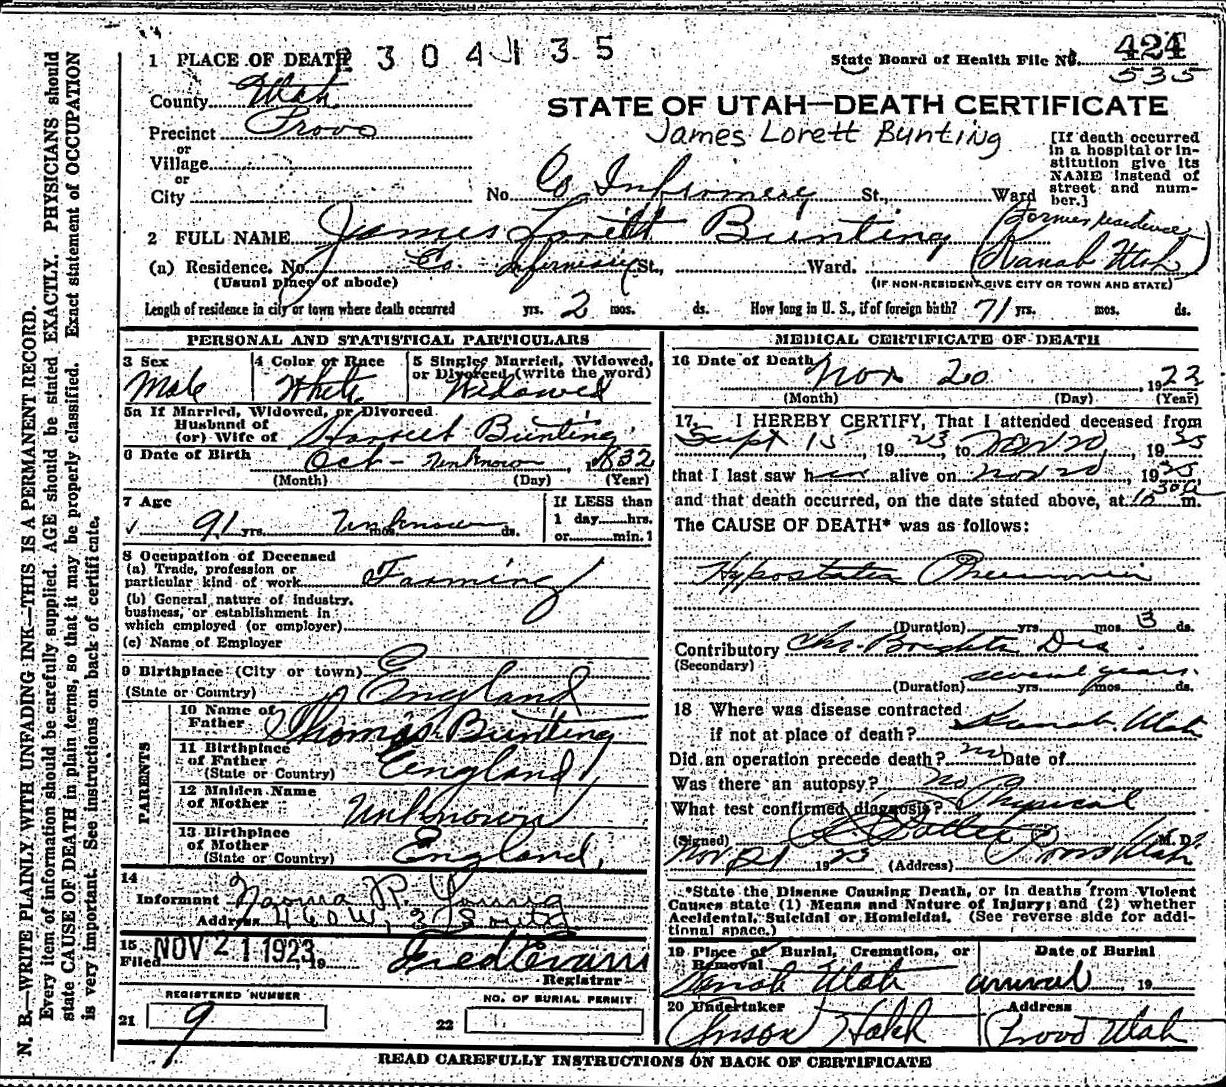 N. B.—WRITE PLAINLY WITH UNFADING INK—THIS IS A PERMANENT RECORD.
Every item of information should be carefully supplied. AGE should be stated EXACTLY. PHYSICIANS should
state CAUSE OF DEATH in plain terms, so that it may be properly classified. Exact statement of OCCUPATION
is very important. See instructions on back of certificate.
1 PLACE OF DEATH 2304135
State Board of Health File No. 424
535
County Utah
STATE OF UTAH—DEATH CERTIFICATE
Precinct Provo
James Lorett Bunting
or
Village
or
City
No. Co Infiromery St., Ward
[If death occurred
in a hospital or in-
stitution give its
NAME instead of
street and num-
ber.]
2 FULL NAME James Lovitt Bunting
(Former residence
Kanab Utah)
(a) Residence. No. Co. Infirmary St., Ward.
(Usual place of abode)
(IF NON-RESIDENT GIVE CITY OR TOWN AND STATE)
Length of residence in city or town where death occurred yrs. 2 mos. ds. How long in U. S., if of foreign birth? 71 yrs. mos. ds.
PERSONAL AND STATISTICAL PARTICULARS
3 Sex
Male
4 Color or Race
White
5 Single, Married, Widowed,
or Divorced (write the word)
Widowed
5a If Married, Widowed, or Divorced
Husband of
(or) Wife of Harriet Bunting
6 Date of Birth Oct- unknown, 1832
(Month) (Day) (Year)
7 Age
91 yrs. Unknown mos. ds.
If LESS than
1 day......hrs.
or......min.?
8 Occupation of Deceased
(a) Trade, profession or
particular kind of work Framing
(b) General nature of industry,
business, or establishment in
which employed (or employer)
(c) Name of Employer
9 Birthplace (City or town)
(State or Country) England
PARENTS
10 Name of
Father Thomas Bunting
11 Birthplace
of Father England
(State or Country)
12 Maiden Name
of Mother Unknown
13 Birthplace
of Mother England
(State or Country)
14
Informant Naoma R. Young
Address 460 W, 2 South
15
Filed NOV 21 1923, 19 Fred Evans
Registrar
REGISTERED NUMBER
21 9
NO. OF BURIAL PERMIT
22
MEDICAL CERTIFICATE OF DEATH
16 Date of Death Nov 20, 1923
(Month) (Day) (Year)
17. I HEREBY CERTIFY, That I attended deceased from
Sept 15, 1923, to Nov 20, 1923
that I last saw h alive on Nov 20, 1923
and that death occurred, on the date stated above, at 10 30 a m.
The CAUSE OF DEATH* was as follows:
Hypostatic Pneumonia
(Duration) yrs. mos. 3 ds.
Contributory Chr. Brights Dis.
(Secondary)
several years.
(Duration) yrs. mos. ds.
18 Where was disease contracted
if not at place of death? Kanab. Utah
Did an operation precede death? no Date of
Was there an autopsy? no
What test confirmed diagnosis? Physical
(Signed) M. D.
Nov 21 1923 (Address) Provo Utah
*State the Disease Causing Death, or in deaths from Violent
Causes state (1) Means and Nature of Injury; and (2) whether
Accidental, Suicidal or Homicidal. (See reverse side for addi-
tional space.)
19 Place of Burial, Cremation, or
Removal
Kanab Utah
Date of Burial
arrival, 19
20 Undertaker
Anson Hatch
Address
Provo Utah
READ CAREFULLY INSTRUCTIONS ON BACK OF CERTIFICATE